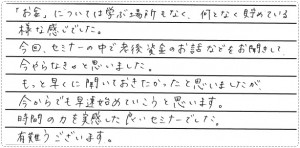 「お金」については学ぶ場所もなく、何となく貯めている
様な感じでした。
今回、セミナーの中で老後資金のお話などをお聞きして、
今やらなきゃと思いました。
もっと早くに聞いておきたかったと思いましたが、
今からでも早速始めていこうと思います。
時間の力を実感した良いセミナーでした。
有難うございます。